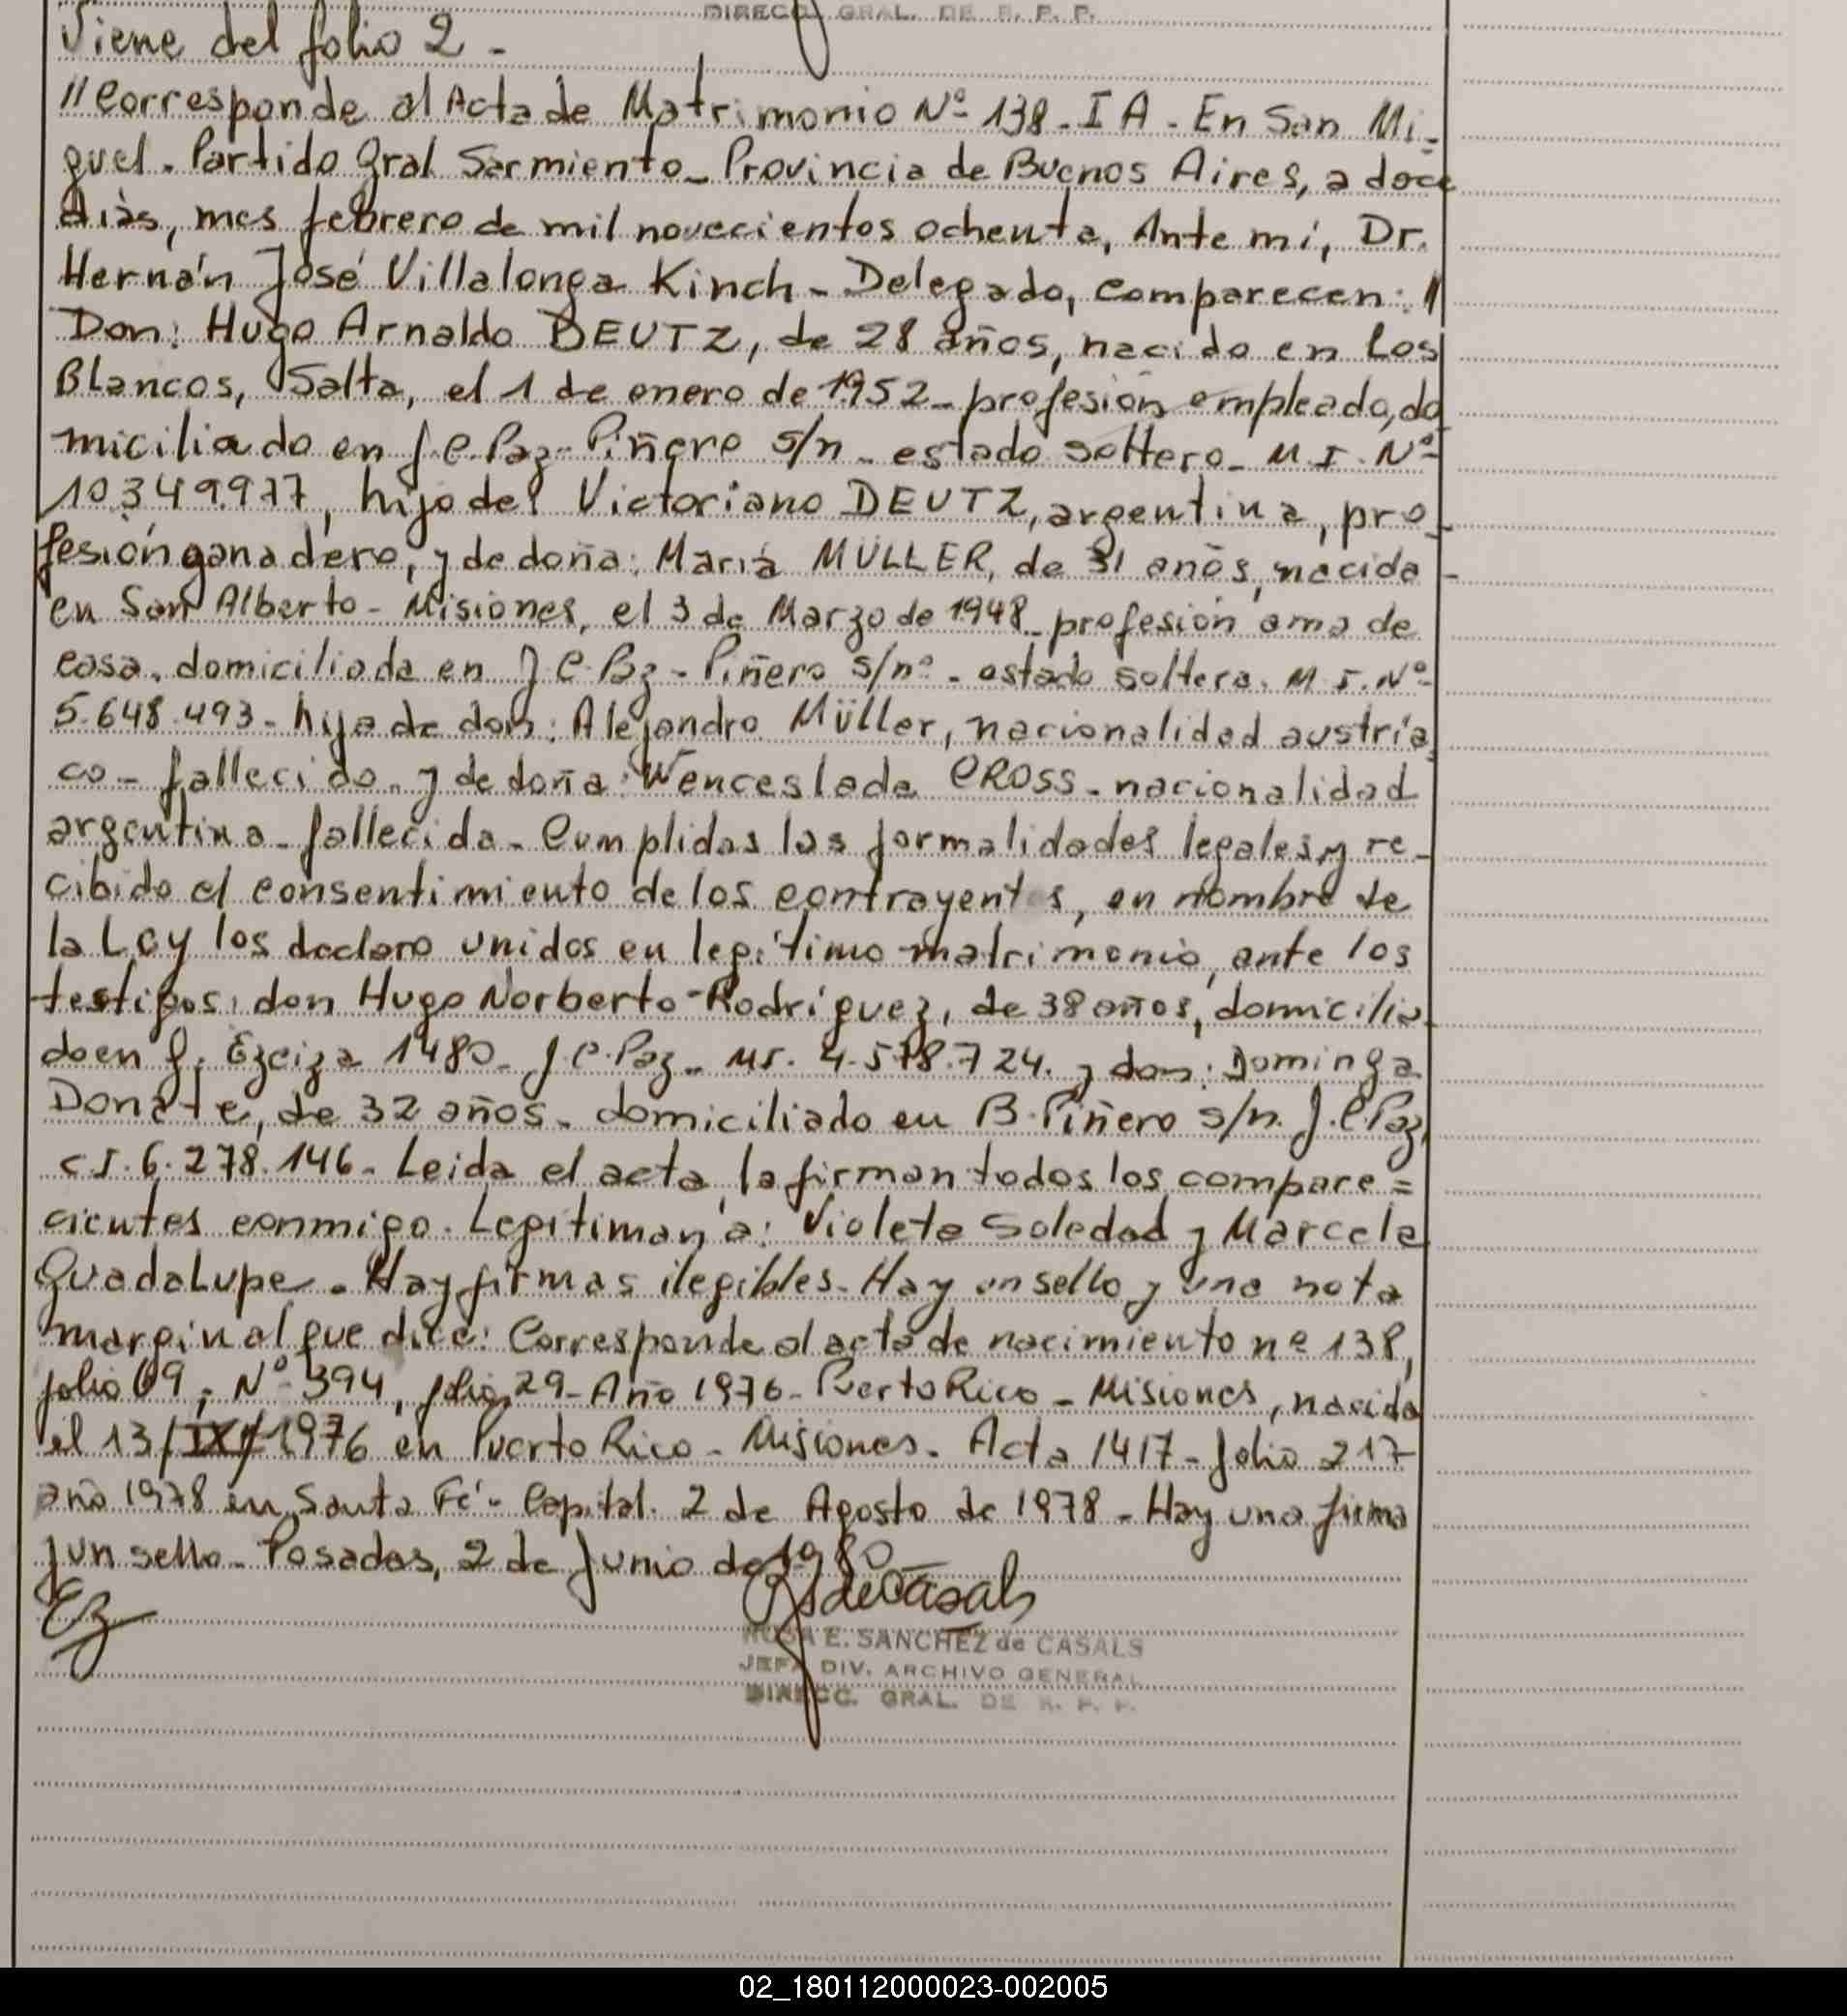 DIRECC. GRAL. DE R. P. P.
Viene del folio 2 -
// Corresponde al Acta de Matrimonio Nº 138 - I A - En San Mi-
guel. Partido Gral Sarmiento - Provincia de Buenos Aires, a doce
días, mes febrero de mil novecientos ochenta, Ante mí, Dr.
Hernán José Villalonga Kinch - Delegado, comparecen: //
Don: Hugo Arnaldo DEUTZ, de 28 años, nacido en Los
Blancos, Salta, el 1 de enero de 1952 - profesión empleado, do
miciliado en J.C. Paz - Piñero s/n - estado soltero - M.I. Nº
10.349.977, hijo de: Victoriano DEUTZ, argentina, pro-
fesión ganadero, y de doña: María MÜLLER, de 31 años, nacida -
en San Alberto - Misiones, el 3 de Marzo de 1948 - profesión ama de
casa. domiciliada en J.C. Paz - Piñero s/nº - estado soltera. M.I. Nº
5.648.493 - hija de don: Alejandro Müller, nacionalidad austría
co - fallecido - y de doña: Wenceslada CROSS - nacionalidad
argentina - fallecida - Cumplidas las formalidades legales y re-
cibido el consentimiento de los contrayentes, en nombre de
la Ley los declaro unidos en legítimo matrimonio, ante los
testigos: don Hugo Norberto Rodríguez, de 38 años, domicilia
do en J. Ezeiza 1480 - J.C. Paz - MI. 4.578.724. y don: Dominga
Donate, de 32 años - domiciliado en B. Piñero s/n. J.C. Paz,
C.I. 6.278.146 - Leida el acta, la firman todos los compare=
cientes conmigo. Legitiman a: Violeta Soledad y Marcela
Guadalupe - Hay firmas ilegibles - Hay un sello y una nota
marginal que dice: Corresponde al acta de nacimiento nº 138,
folio 69, Nº 394, folio 29 - Año 1976 - Puerto Rico - Misiones, nacida
el 13/IX/1976 en Puerto Rico - Misiones - Acta 1417 - folio 217
año 1978 en Santa Fé - Capital. 2 de Agosto de 1978 - Hay una firma
y un sello - Posadas, 2 de Junio de 1980
RSdeCasals
ROSA E. SANCHEZ de CASALS
JEFA DIV. ARCHIVO GENERAL
DIRECC. GRAL. DE R. P. P.
02_180112000023-002005